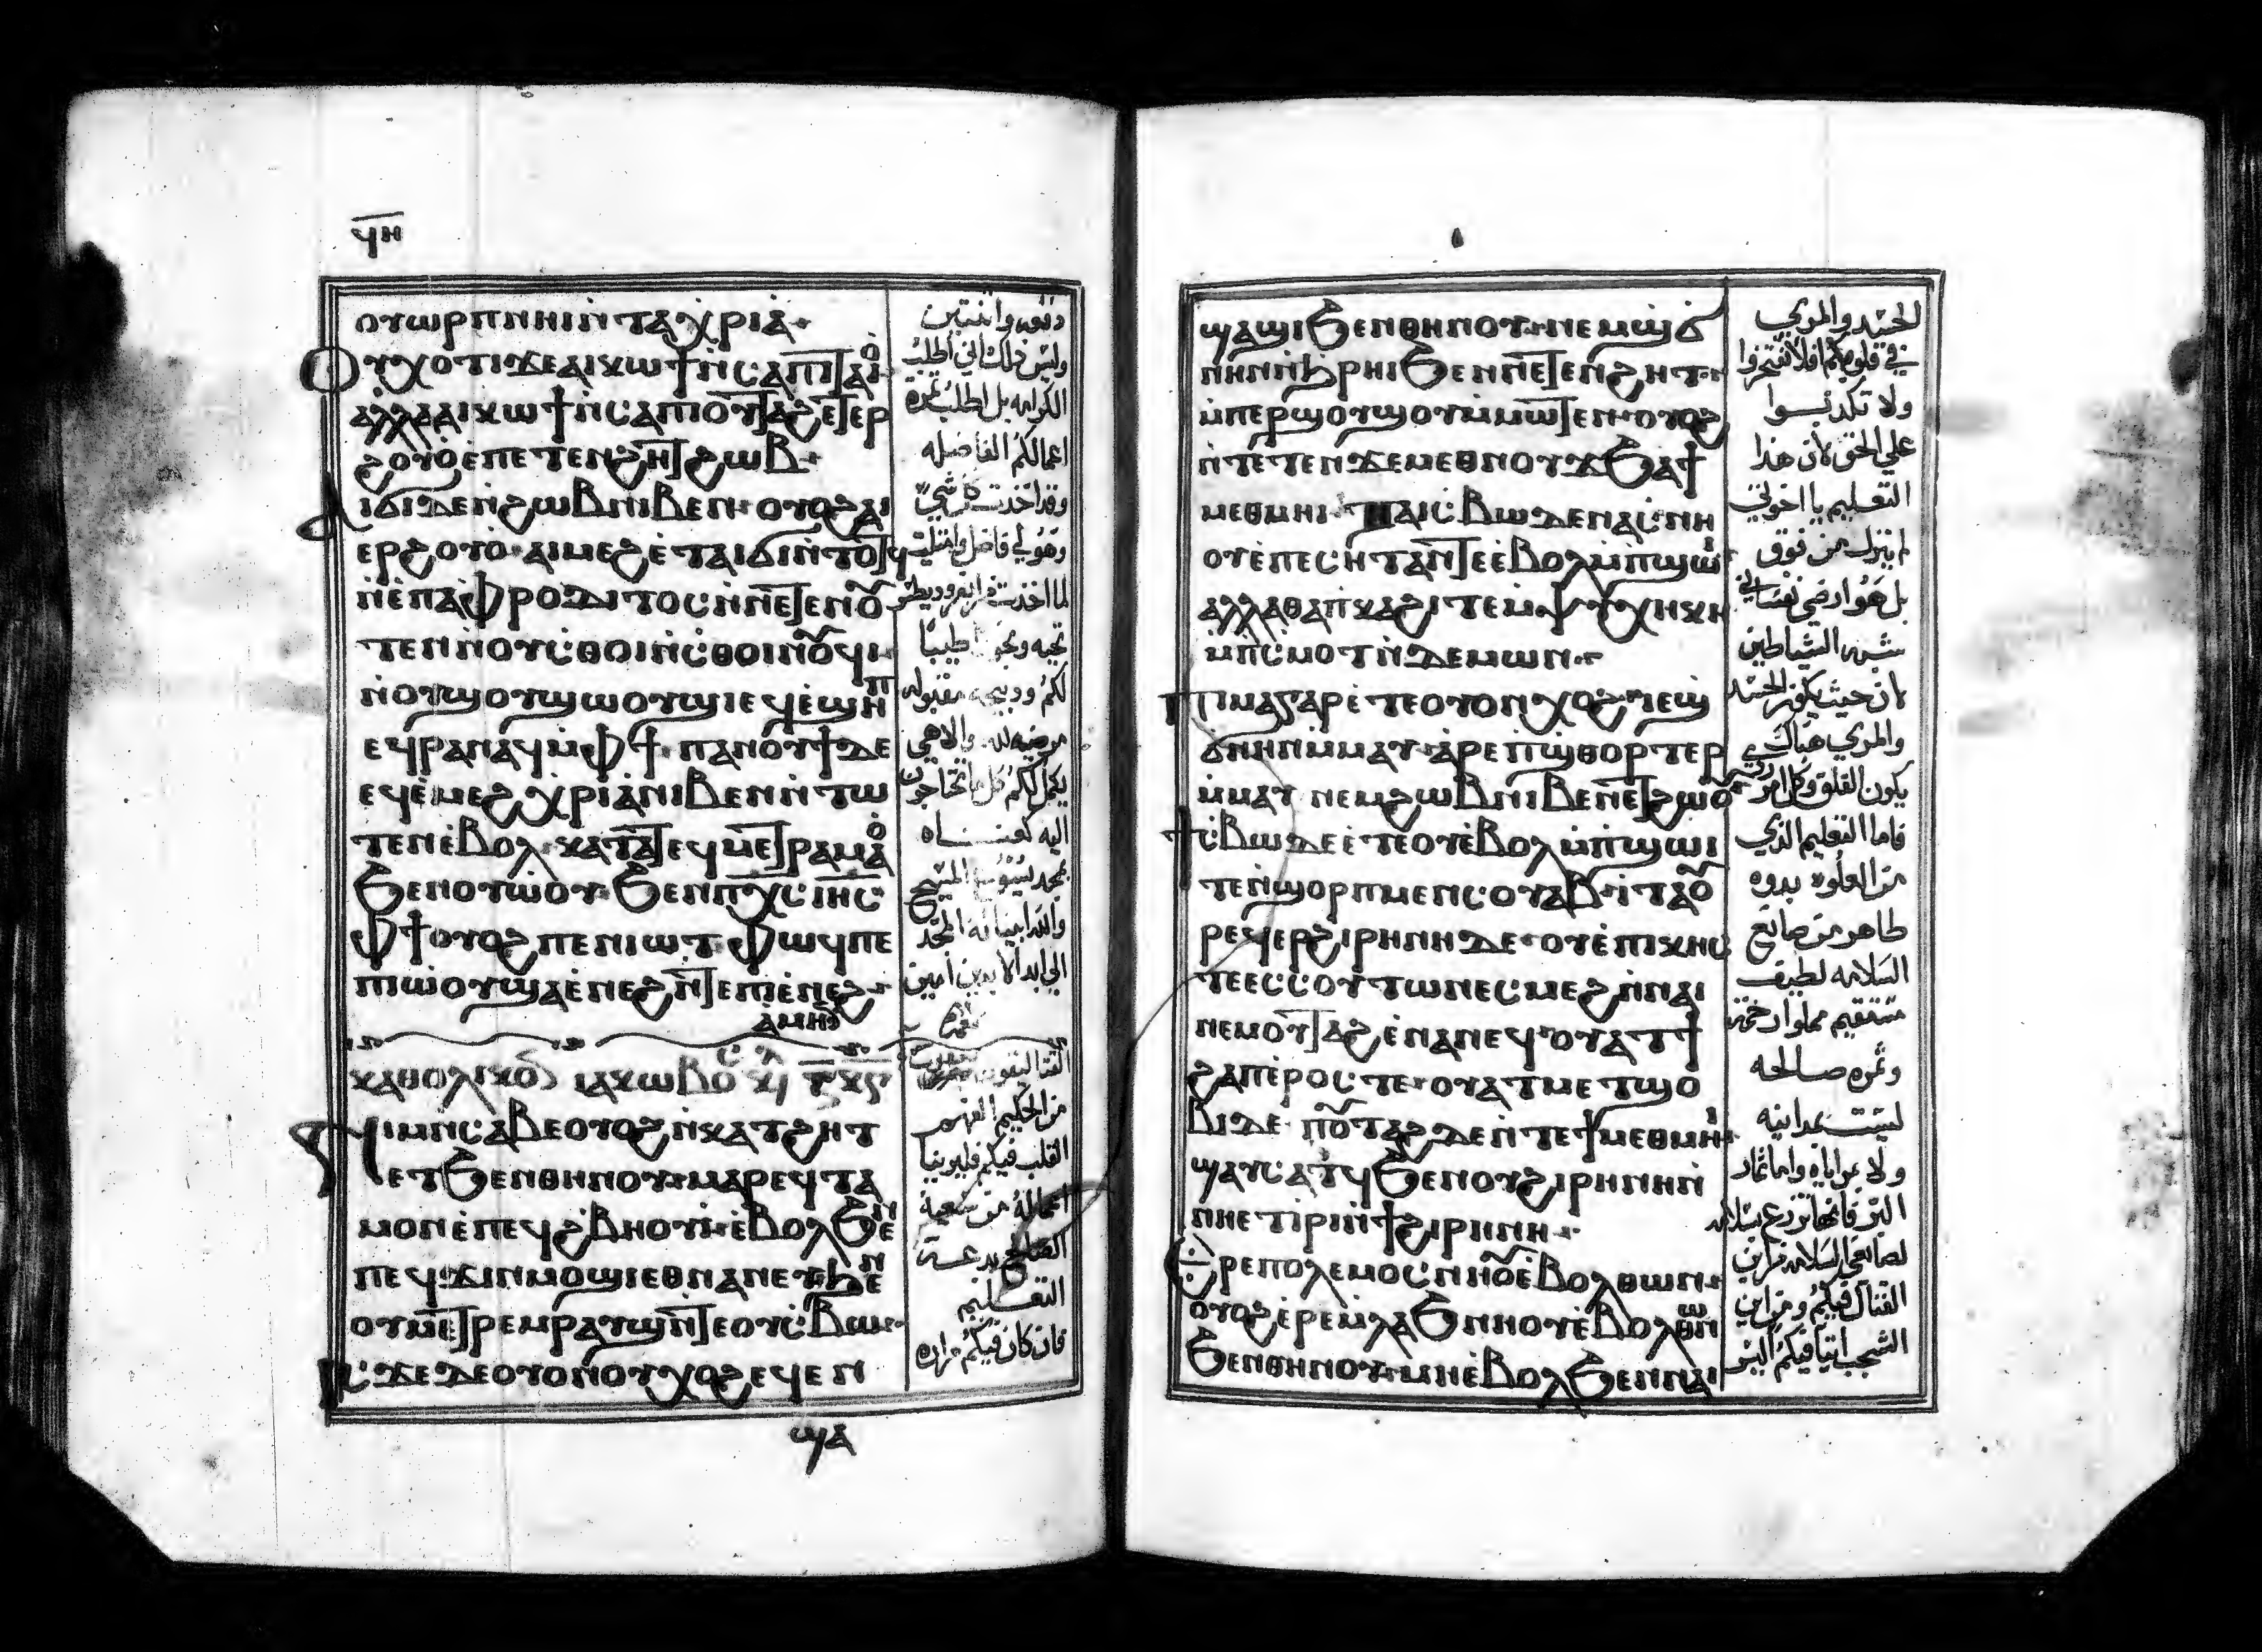 ϥⲏ
ⲟⲩⲱⲣⲡ ⲛⲏⲓ ⲛ̀ⲧⲁⲭⲣⲓⲁ̀
Ⲟⲩⲭⲟⲧⲓ ϫⲉ ⲁⲓⲕⲱϯ ⲛ̀ⲥⲁ ⲡⲓⲧⲁⲓⲟ̀
ⲁⲗⲗⲁ ⲁⲓⲕⲱϯ ⲛ̀ⲥⲁ ⲡⲓⲟⲩⲧⲁϩ ⲉⲧⲉⲣ
ϩⲟⲩⲟ̀ ⲉ̀ⲡⲉⲧⲉⲛϩⲏⲧ ϩⲱⲃ
Ⲁⲓϭⲓ ⲇⲉ ⲛ̀ϩⲱⲃ ⲛⲓⲃⲉⲛ ⲟⲩⲟϩ ⲁⲓ
ⲉⲣϩⲟⲩⲟ ⲁⲓⲙⲉϩ ⲉ̀ⲧⲁⲓϭⲓ ⲛ̀ⲧⲟⲧϥ
ⲛ̀ⲉ̀ⲡⲁⲫⲣⲟⲇⲓⲧⲟⲥ ⲛ̀ⲛⲉⲧⲉⲛⲟ̄
ⲧⲉⲛ ⲛ̀ⲟⲩⲥ̀ⲑⲟⲓ ⲛ̀ⲥ̀ⲑⲟⲓⲛⲟ̄ϥⲓ
ⲛ̀ⲟⲩϣⲟⲩϣⲱⲟⲩϣⲓ ⲉϥϣⲏⲡ
ⲉϥⲣⲁⲛⲁϥ ⲙ̀ⲫϯ ⲡⲁⲛⲟⲩϯ ⲇⲉ
ⲉϥⲉ̀ⲙⲉϩ ⲭⲣⲓⲁ̀ ⲛⲓⲃⲉⲛ ⲛ̀ⲧⲱ
ⲧⲉⲛ ⲉ̀ⲃⲟⲗ ⲕⲁⲧⲁ ⲧⲉϥⲙⲉⲧⲣⲁⲙⲁⲟ̀
ϧⲉⲛ ⲟⲩⲱ̀ⲟⲩ ϧⲉⲛ ⲡⲭ̅ⲥ̅ ⲓⲏ̅ⲥ̅
ⲫϯ ⲟⲩⲟϩ ⲡⲉⲛⲓⲱⲧ ⲫⲱϥ ⲡⲉ
ⲡⲓⲱ̀ⲟⲩ ϣⲁ ⲉ̀ⲛⲉϩ ⲛ̀ⲧⲉ ⲡⲓⲉ̀ⲛⲉϩ
ⲁ̀ⲙⲏⲛ
ⲕⲁⲑⲟⲗⲓⲕⲟⲛ ⲓⲁⲕⲱⲃⲟⲥ
Ⲛⲓⲙ ⲡⲥⲁⲃⲉ ⲟⲩⲟϩ ⲛ̀ⲕⲁⲧϩⲏⲧ
ⲉⲧϧⲉⲛ ⲑⲏⲛⲟⲩ ⲙⲁⲣⲉϥⲧⲁ
ⲙⲟⲛ ⲉ̀ⲛⲉϥϩ̀ⲃⲏⲟⲩⲓ̀ ⲉ̀ⲃⲟⲗϧⲉⲛ
ⲡⲉϥϫⲓⲛⲙⲟϣⲓ ⲉⲑⲛⲁⲛⲉϥ ϧⲉⲛ
ⲟⲩⲙⲉⲧⲣⲉⲙⲣⲁⲩϣ ⲛ̀ⲧⲉ ⲟⲩⲥ̀ⲃⲱ
Ⲓⲥϫⲉ ⲇⲉ ⲟⲩⲟⲛ ⲟⲩⲭⲟϩ ⲉϥⲉⲛ
دفعه واثنتين
وليس ذلك اني اطلب
الكرامه بل اطلب ثمرة
اعمالكم الفاضله
وقد اخذت كل شي
وهو لي فاضل وامتليت
لما اخذت من ابفروديطس
طيبًا
لكم وذبيحه مقبوله
مرضيه لله والاهي
يكمل لكم كل ما تحتاجون
اليه كغنـــاه
بمجد يسوع المسيح
والله ابينا له المجد
الي ابد الابدين امين
من الحكيم الفهم
القلب فيكم فليرينا
اعماله من سعيه
الصالح بدعـــة
التعـــليم
فان كان فيكم مراره
ϣⲁ
ϣⲁϣⲓ ϧⲉⲛ ⲑⲏⲛⲟⲩ ⲛⲉⲙ ϣ̀ϭ
ⲛⲏⲛ ⲛ̀ϩ̀ⲣⲏⲓ ϧⲉⲛ ⲛⲉⲧⲉⲛϩⲏⲧ
ⲙ̀ⲡⲉⲣϣⲟⲩϣⲟⲩ ⲙ̀ⲙⲱⲧⲉⲛ ⲟⲩⲟϩ
ⲛ̀ⲧⲉⲧⲉⲛϫⲉⲙⲉⲑⲛⲟⲩϫ ϧⲁ ϯ
ⲙⲉⲑⲙⲏⲓ ⲧⲁⲓⲥ̀ⲃⲱ ⲇⲉ ⲛⲁⲥⲛⲏ
ⲟⲩ ⲉ̀ⲡⲉⲥⲏⲧ ⲁⲛ ⲧⲉ ⲉ̀ⲃⲟⲗ ⲙ̀ⲡ̀ϣⲱⲓ
ⲁⲗⲗⲁ ⲑⲁ ⲡⲕⲁϩⲓ ⲧⲉ ⲙ̀ⲯⲩⲭⲏⲕⲏ
ⲙ̀ⲡⲥ̀ⲙⲟⲧ ⲛ̀ⲇⲉⲙⲱⲛ
Ⲡⲓⲙⲁ ⲅⲁⲣ ⲉ̀ⲧⲉ ⲟⲩⲟⲛ ⲭⲟϩ ⲛⲉⲙ ϣ̀
ϭⲛⲏⲛ ⲙ̀ⲙⲁⲩ ⲁ̀ⲣⲉ ⲡ̀ϣ̀ⲑⲟⲣⲧⲉⲣ
ⲙ̀ⲙⲁⲩ ⲛⲉⲙ ϩⲱⲃ ⲛⲓⲃⲉⲛ ⲉⲧϩⲱⲟⲩ
ϯⲥ̀ⲃⲱ ⲇⲉ ⲉ̀ⲧⲉ ⲟⲩⲉ̀ⲃⲟⲗ ⲙ̀ⲡ̀ϣⲱⲓ
ⲧⲉ ⲛ̀ϣⲟⲣⲡ ⲙⲉⲛ ⲥⲟⲩⲁⲃ ⲓⲧⲁ ⲟ̄
ⲣⲉϥⲉⲣϩⲓⲣⲏⲛⲏ ⲇⲉ ⲟⲩⲉ̀ⲡⲓⲕⲏⲥ
ⲧⲉ ⲉⲥⲥⲟⲩⲧⲱⲛ ⲉⲥⲙⲉϩ ⲛ̀ⲛⲁⲓ
ⲛⲉⲙ ⲟⲩⲧⲁϩ ⲉ̀ⲛⲁⲛⲉϥ ⲟⲩⲁⲧϯ
ϩⲁⲡ ⲉ̀ⲣⲟⲥ ⲧⲉ ⲟⲩⲁⲧⲙⲉⲧϣⲟ
ⲃⲓ ⲇⲉ ⲡⲟⲩⲧⲁϩ ⲇⲉ ⲛ̀ⲧⲉ ϯⲙⲉⲑⲙⲏⲓ
ϣⲁⲩⲥⲁⲧϥ ϧⲉⲛ ⲟⲩϩⲓⲣⲏⲛⲏ ⲛ̀
ⲛⲏ ⲉⲧⲓ̀ⲣⲓ ⲛ̀ϯϩⲓⲣⲏⲛⲏ
Ⲉ̀ⲣⲉ ⲡⲟⲗⲉⲙⲟⲥ ⲛⲏⲟⲩ ⲉ̀ⲃⲟⲗ ⲑⲱⲛ
ⲟⲩⲟϩ ⲉ̀ⲣⲉ ⲙ̀ⲗⲁϧ ⲛⲏⲟⲩ ⲉ̀ⲃⲟⲗ ⲑⲱⲛ
ϧⲉⲛ ⲑⲏⲛⲟⲩ ⲙⲏ ⲉ̀ⲃⲟⲗϧⲉⲛ ⲛⲁⲓ
الحسد والمري
في قلوبكم فلا تفتخروا
ولا تكذبـــوا
علي الحق لان هذا
التعليم يا اخوتي
لم ينزل من فوق
بل هو ارضي نفساني
شبه الشياطين
لان حيث يكون الحسد
والمري هناك
يكون القلق وكل امر ردي
فاما التعليم الذي
من العلوه بدوه
طاهر من صانع
السلامه لطيف
مستقيم مملوا رحمة
وثمره صـالحه
ليست بمدانيه
ولا مراياه واما ثمار
البر فانها تزرع بسلامه
لصانعي السلامه من اين
القتال فيكم ومن اين
الشجب اتيا فيكم اليس